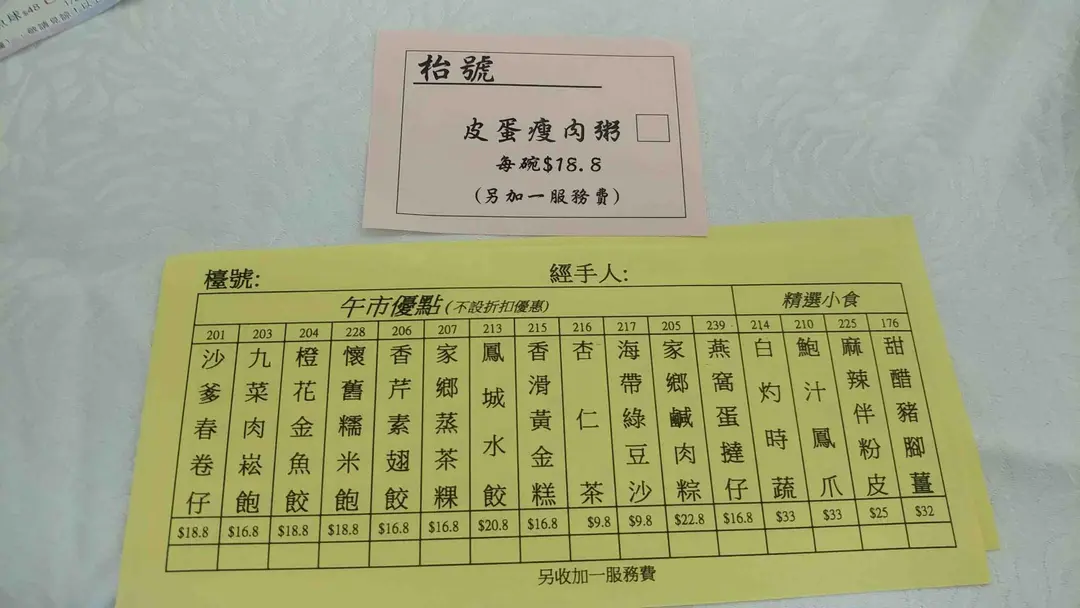 球$48
枱號
皮蛋瘦肉粥
每碗$18.8
(另加一服務費)
檯號: 經手人:
午市優點(不設折扣優惠) 精選小食
201 203 204 228 206 207 213 215 216 217 205 239 214 210 225 176
沙爹春卷仔
九菜肉崧飽
橙花金魚餃
懷舊糯米飽
香芹素翅餃
家鄉蒸茶粿
鳳城水餃
香滑黃金糕
杏仁茶
海帶綠豆沙
家鄉鹹肉粽
燕窩蛋撻仔
白灼時蔬
鮑汁鳳爪
麻辣伴粉皮
甜醋豬腳薑
$18.8 $16.8 $18.8 $18.8 $16.8 $16.8 $20.8 $16.8 $9.8 $9.8 $22.8 $16.8 $33 $33 $25 $32
另收加一服務費